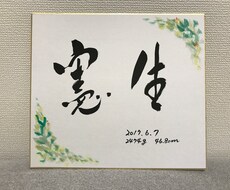 憲生
2017.6.7
2474g 46.8cm